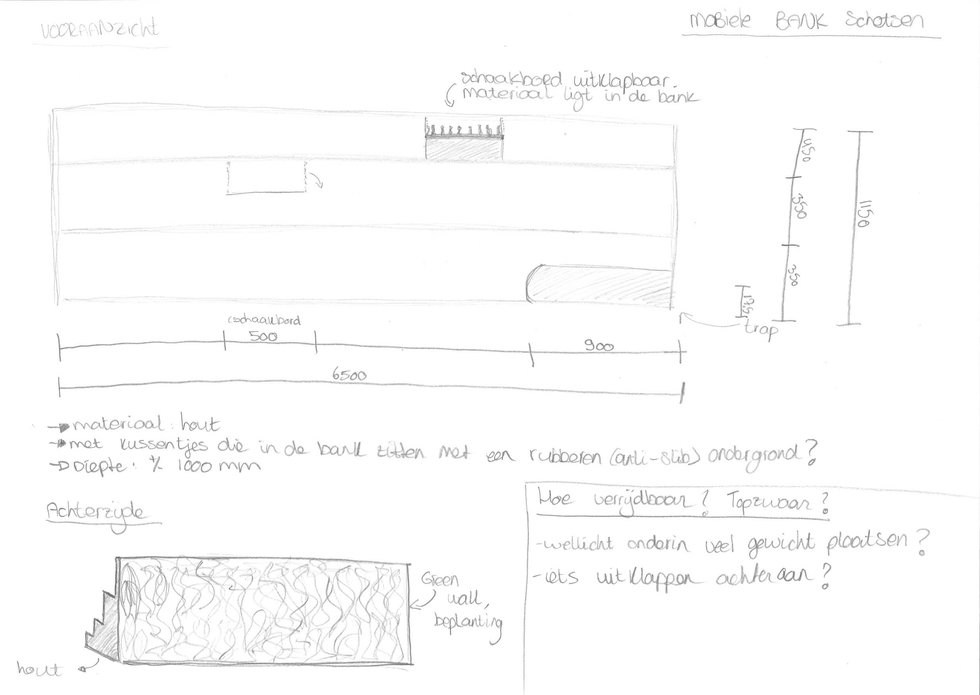 VOORAANZICHT
MOBIELE BANK Schotsen
schaakbord uitklapbaar.
materiaal ligt in de bank
450
350
350
1150
17,5
trap
(schaakbord
500
900
6500
→ materiaal: hout
→ met kussentjes die in de bank zitten met een rubberen (anti-slib) ondergrond?
→ Diepte: % 1000 mm
Achterzijde
Groen
wall,
beplanting
hout
Hoe verrijdbaar? Topzwaar?
-wellicht onderin veel gewicht plaatsen?
-iets uitklappen achteraan?